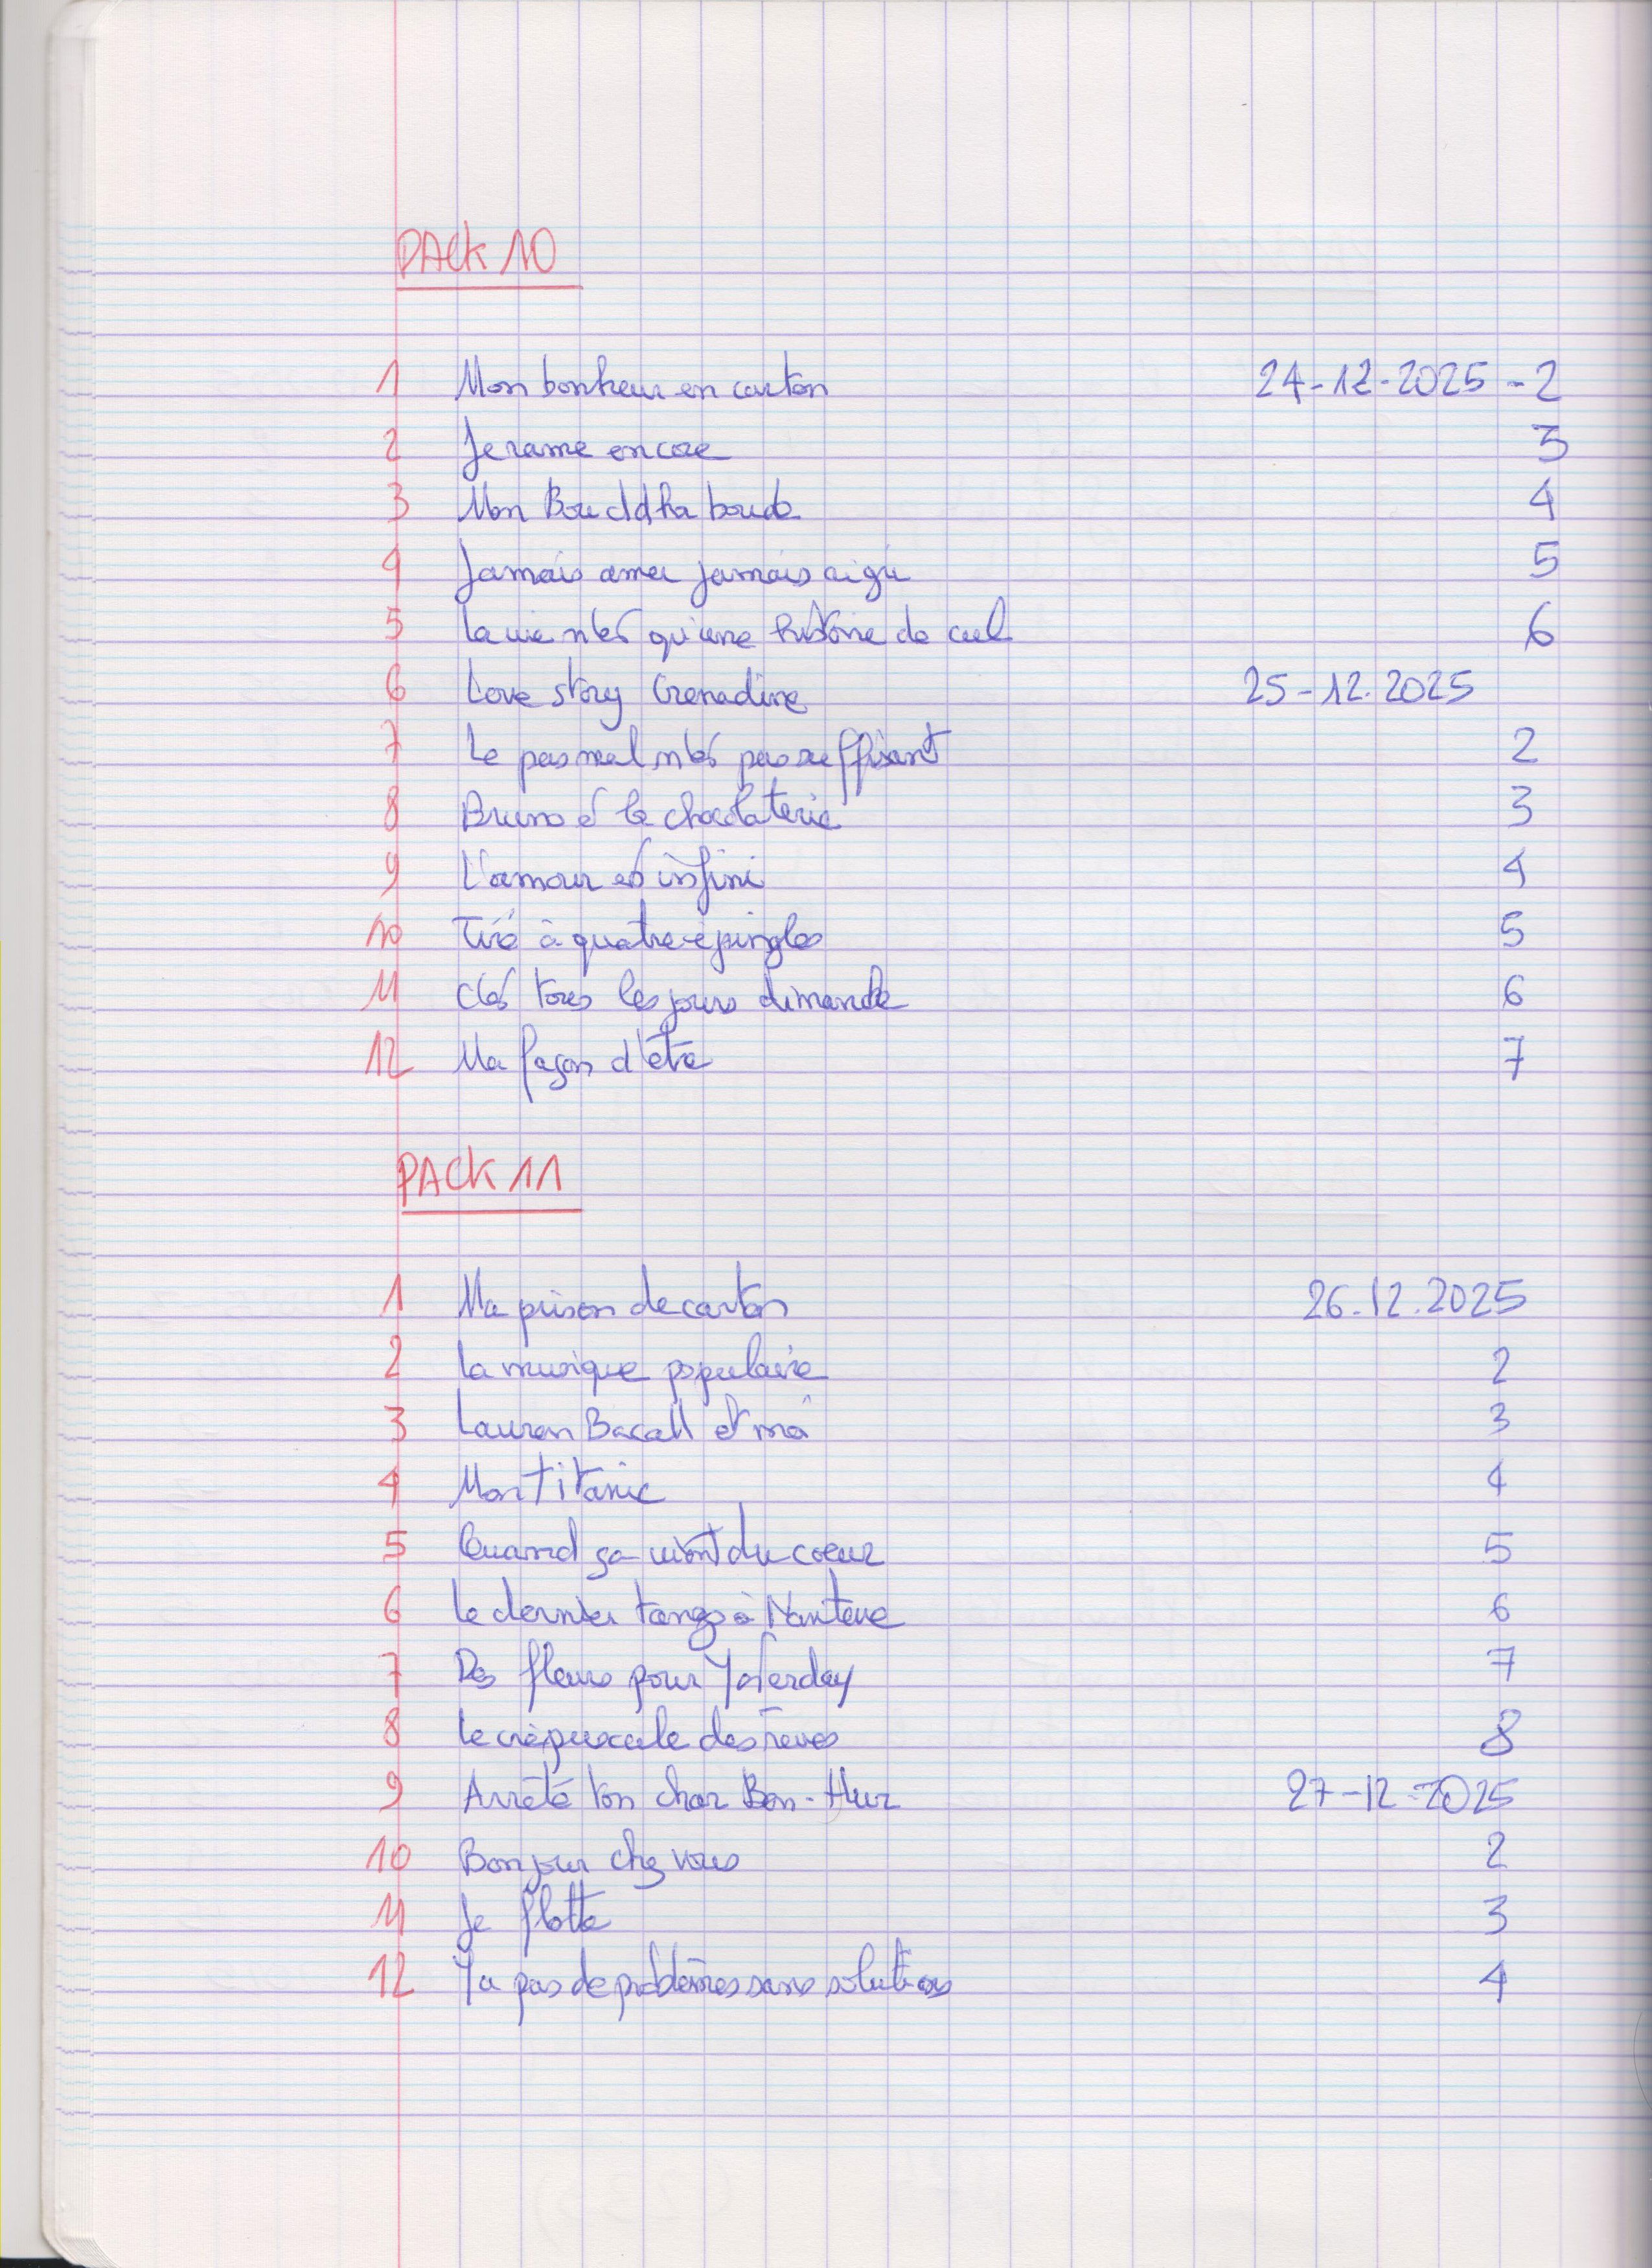 PACK 10
1 Mon bonheur en carton 24-12-2025 - 2
2 Je rame encore 3
3 Mon Bouddha boude 4
4 Jamais amer jamais aigri 5
5 La vie n'est qu'une histoire de cul 6
6 Love story Grenadine 25-12.2025
7 Le pas mal n'est pas suffisant 2
8 Bruno et la chocolaterie 3
9 L'amour est infini 4
10 Tiré à quatre épingles 5
11 C'est tous les jours dimanche 6
12 Ma façon d'être 7
PACK 11
1 Ma prison de carton 26.12.2025
2 La musique populaire 2
3 Lauren Bacall et moi 3
4 Mon Titanic 4
5 Quand ça vient du coeur 5
6 Le dernier tango à Nanterre 6
7 Des fleurs pour Yesterday 7
8 Le crépuscule des rêves 8
9 Arrête ton char Ben-Hur 27-12-2025
10 Bonjour chez vous 2
11 Je flotte 3
12 Y a pas de problèmes sans solutions 4